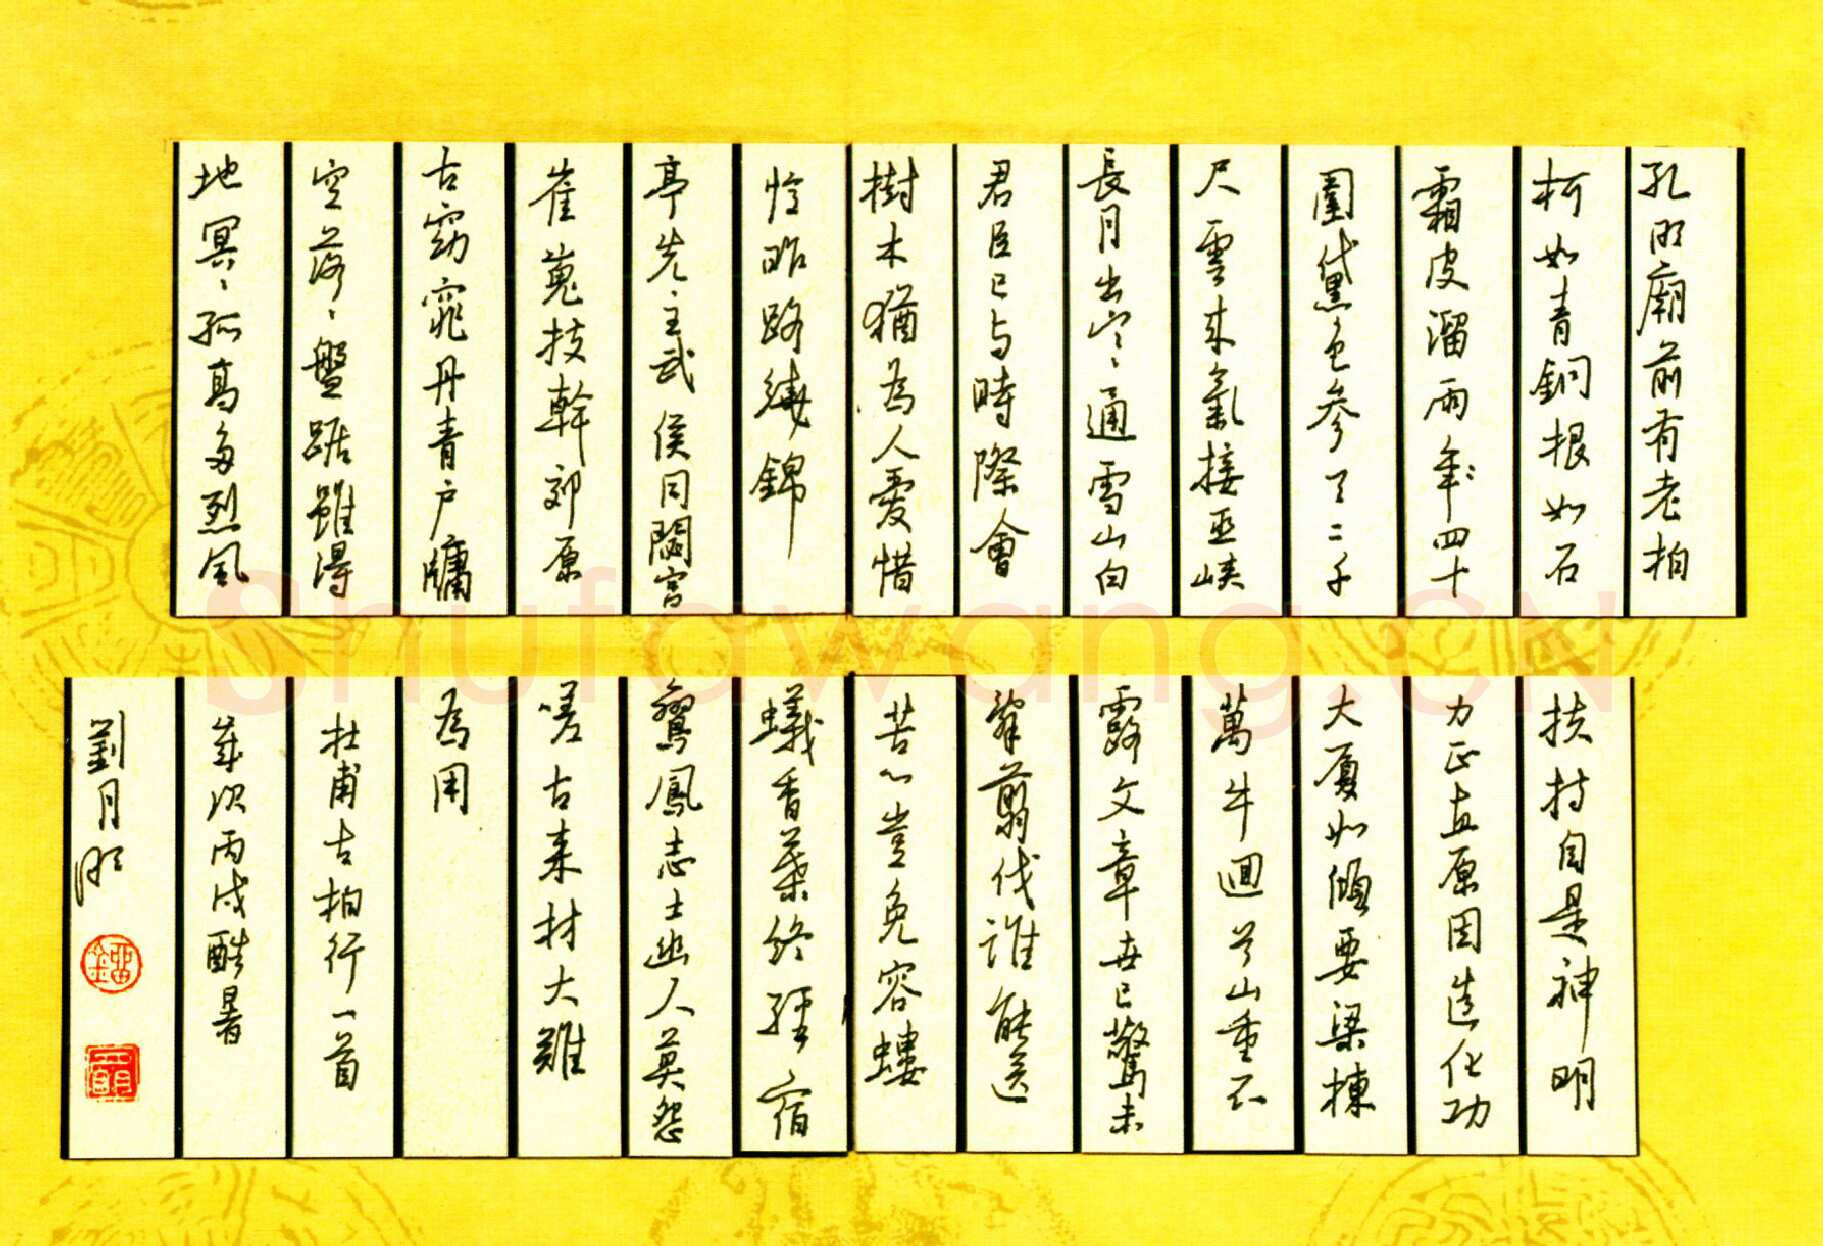 孔明廟前有老柏
柯如青銅根如石
霜皮溜雨年四十
圍黛色參天二千
尺雲來氣接巫峽
長月出寒通雪山白
君臣已与時際會
樹木猶為人愛惜
憶昨路繞錦
亭先主武侯同閟宮
崔嵬枝幹郊原
古窈窕丹青戶牖
空落々盤踞雖得
地冥々孤高多烈風
扶持自是神明
力正直原因造化功
大廈如傾要梁棟
萬牛迴首山重不
露文章世已驚未
辭翦伐誰能送
苦心豈免容螻
蟻香葉終經宿
鸞鳳志士幽人莫怨
嗟古來材大難
為用
杜甫古柏行一首
歲次丙戌酷暑
劉月明
Shufawang.CN